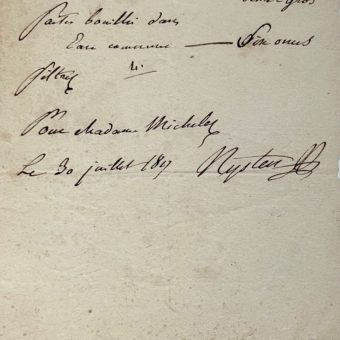 demi gros
faites bouillir dans
Eau commune —— Six onces
filtrez
Pour Madame Michelet
Le 30 juillet 1817 Nysten